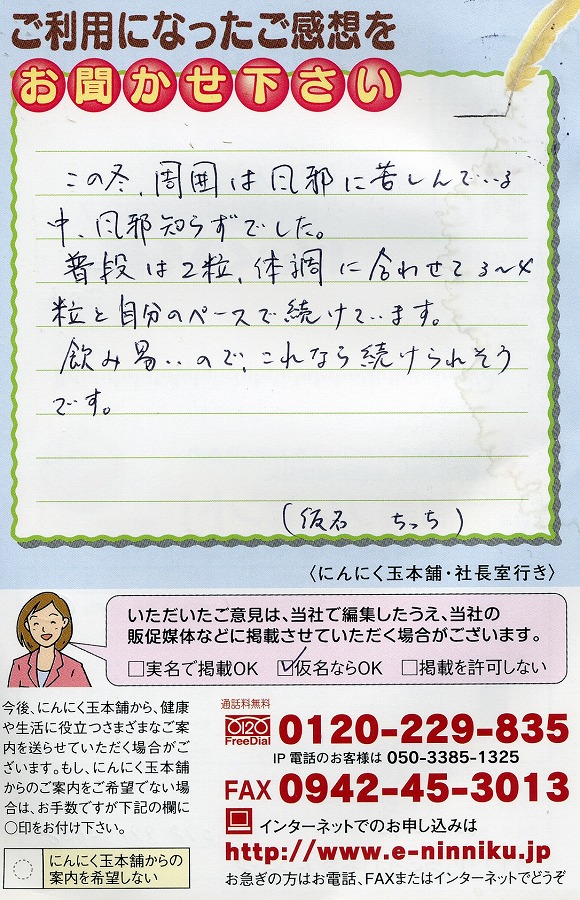 ご利用になったご感想を
お聞かせ下さい
この冬、周囲は風邪に苦しんでいる
中、風邪知らずでした。
普段は2粒、体調に合わせて3〜4
粒と自分のペースで続けています。
飲み易いので、これなら続けられそう
です。
(仮名 ちっち)
〈にんにく玉本舗・社長室行き〉
いただいたご意見は、当社で編集したうえ、当社の
販促媒体などに掲載させていただく場合がございます。
□実名で掲載OK ☑仮名ならOK □掲載を許可しない
今後、にんにく玉本舗から、健康
や生活に役立つさまざまなご案
内を送らせていただく場合がご
ざいます。もし、にんにく玉本舗
からのご案内をご希望でない場
合は、お手数ですが下記の欄に
○印をお付け下さい。
にんにく玉本舗からの
案内を希望しない
通話料無料
0120
FreeDial
0120-229-835
IP電話のお客様は 050-3385-1325
FAX 0942-45-3013
インターネットでのお申し込みは
http://www.e-ninniku.jp
お急ぎの方はお電話、FAXまたはインターネットでどうぞ